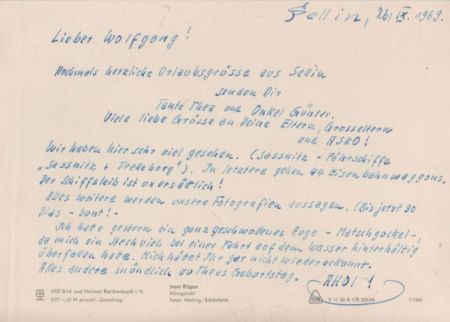 Sellin, 26. IX. 1969.
Lieber Wolfgang!
Nochmals herzliche Urlaubsgrüsse aus Sellin
senden Dir
Tante Thea und Onkel Günter.
Viele liebe Grüsse an Deine Eltern, Grosseltern
und ASKO!
Wir haben hier sehr viel gesehen. (Sassnitz - Fährschiffe
"Sassnitz + Trelleborg"). In letztere gehen 44 Eisenbahnwaggons.
Der Schiffsleib ist unersättlich!
Alles weitere werden unsere Fotografien aussagen. (Bis jetzt 90
Dias - bunt! -
Ich hatte gestern ein ganz geschwollenes Auge - Matschgockel -!
da mich ein Mechvieh bei einer Fahrt auf dem Wasser hinterhältig
überfallen hatte. Mich hätet Ihr gar nicht wiedererkannt.
Alles andere mündlich zu Theas Geburtstag.
AHOI!
VEB Bild und Heimat Reichenbach i. V.
EVP -,20 M einschl. Umschlag
Insel Rügen
Königsstuhl
Foto: Mehlig, Schönfeld